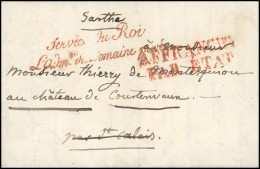 Sarthe
Service du Roi
à Monsieur
L'adm. du Domaine
AFFRANCHI
PAR ETAT
Monsieur Thierry de Montesquiou
au château de Courtenvaux
par St Calais.